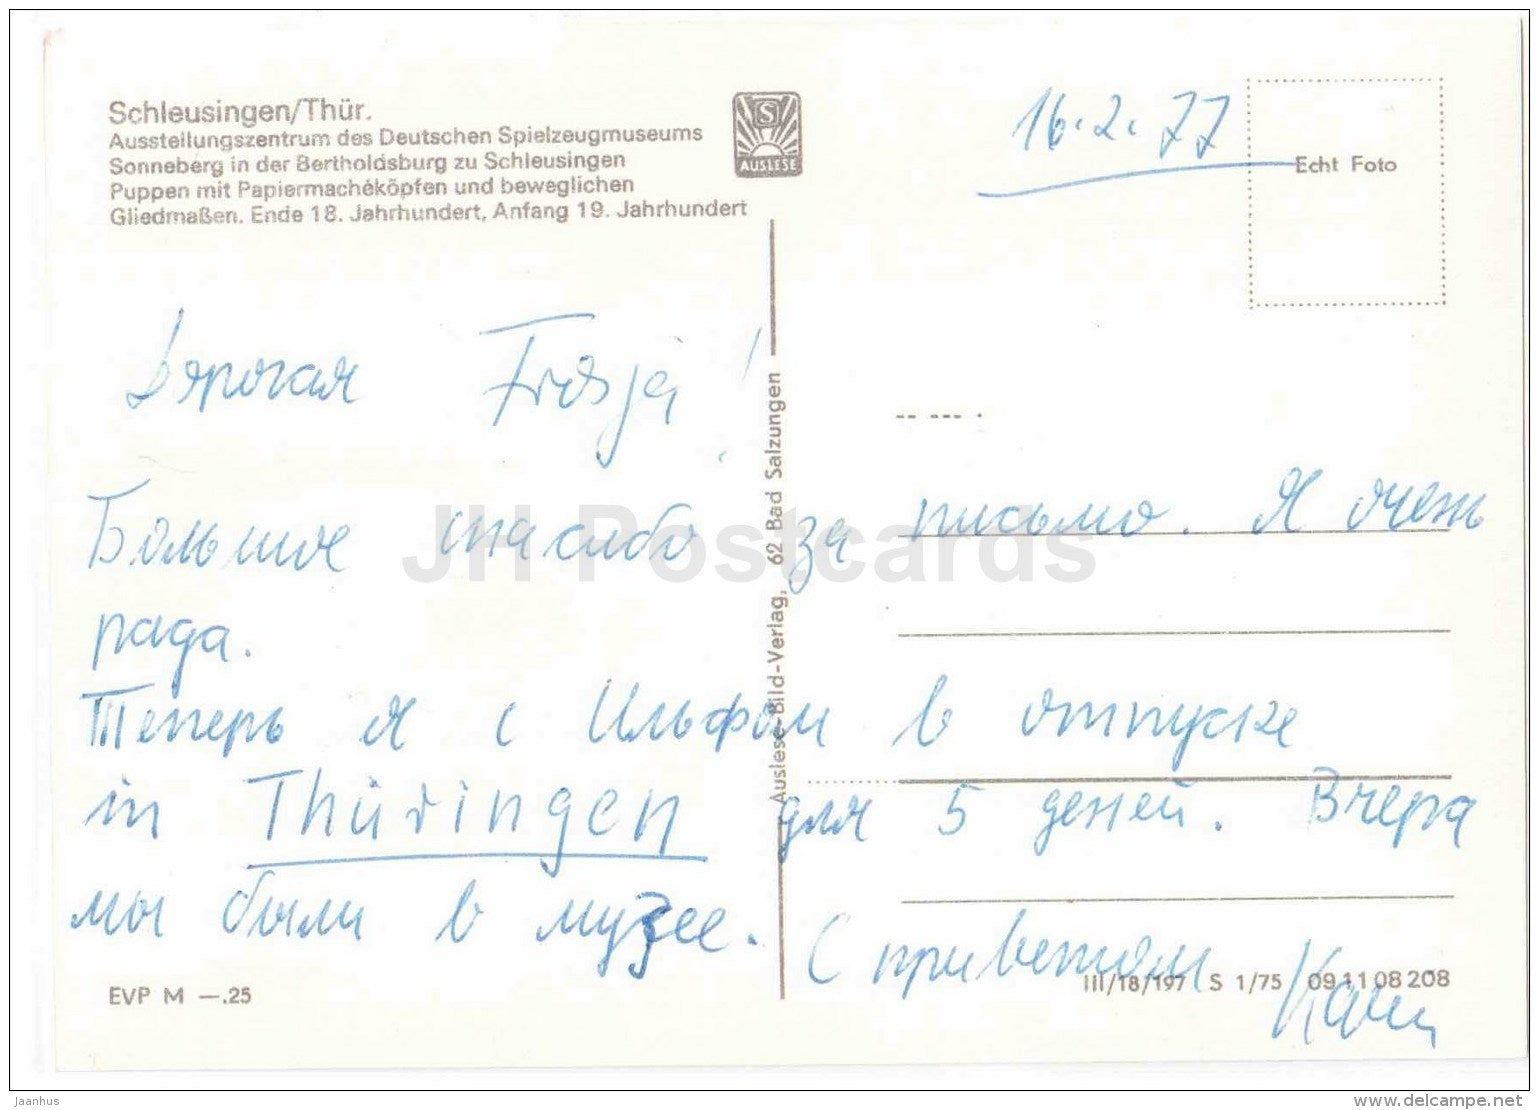 Schleusingen/Thür.
Ausstellungszentrum des Deutschen Spielzeugmuseums
Sonneberg in der Bertholdsburg zu Schleusingen
Puppen mit Papiermachéköpfen und beweglichen
Gliedmaßen. Ende 18. Jahrhundert, Anfang 19. Jahrhundert
S
AUSLESE
16.2.77
Echt Foto
Дорогая Frosja!
Большое спасибо за письмо. Я очень
рада.
Теперь я с Ильфом в отпуске
in Thüringen для 5 деней. Вчера
мы были в музее.
С приветом
Auslese-Bild-Verlag, 62 Bad Salzungen
EVP M —.25
III/18/197 S 1/75 09 11 08 208
JH Postcards
Jaanhus
www.delcampe.net